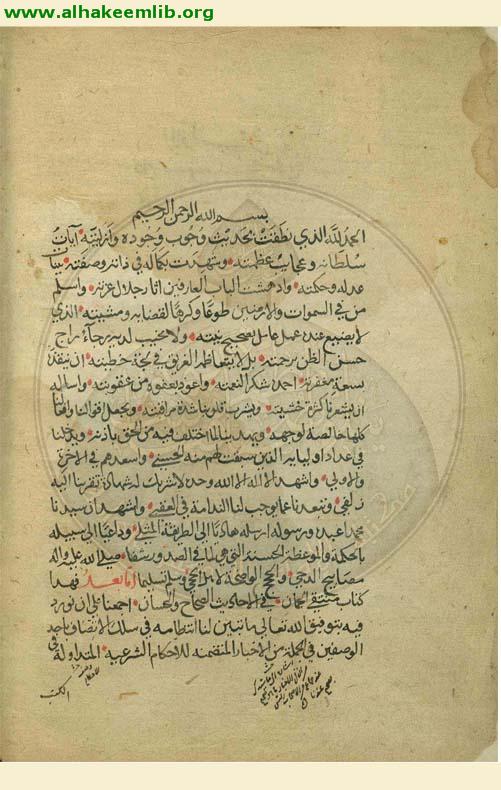 www.alhakeemlib.org
بسم الله الرحمن الرحيم
الحمد لله الذي نطقت بحديث وجوب وجوده وازليته آيات
سلطانه وعجايب عظمته وشهدت بكماله في ذاته وصفته بينات
عدله وحكمته وادهشت الباب العارفين اثار جلال عزته واسلم
من في السموات والارضين طوعا وكرها لقضايه ومشيته الذي
لا يضيع عنده عمل عامل بصحيح نيته ولا يخيب لديه رجآء راج
حسن الظن برحمته بل لا يتعاظم الغريق في لجة خطيئته ان ينقذه
بسعة مغفرته احمده شكرا لنعمته واعوذ بعفوه من عقوبته واساله
ان يشعرنا كثرة خشيته ويشرب قلوبنا شدة مراقبته ويجعل اقوالنا وافعالنا
كلها خالصة لوجهه ويهدينا لما اختلف فيه من الحق باذنه ويدخلنا
في عداد اوليايه الذين سبقت لهم منه الحسنى واسعدهم في الاخرة
والاولى واشهد ان لا اله الا الله وحده لا شريك له شهادة تقربنا اليه
زلفى وتبعدنا عما يوجب لنا الندامة في العقبى واشهد ان سيدنا
محمدا عبده ورسوله ارسله هاديا الى الطريقة المثلى وداعيا الى سبيله
بالحكمة والموعظة الحسنة التي هي لما في الصدور شفا صلى الله عليه واله
مصابيح الدجى والحجج الواضحة لاهل الحجى وسلم تسليما اما بعد فهذا
كتاب منتقى الجمان في الاحاديث الصحاح والحسان اجمعنا على ان نورد
فيه بتوفيق الله تعالى ما تبين لنا انتظامه في سلك الاتصاف باحد
الوصفين في الجملة من الاخبار المتضمنه للاحكام الشرعية المتداولة في
الكتب